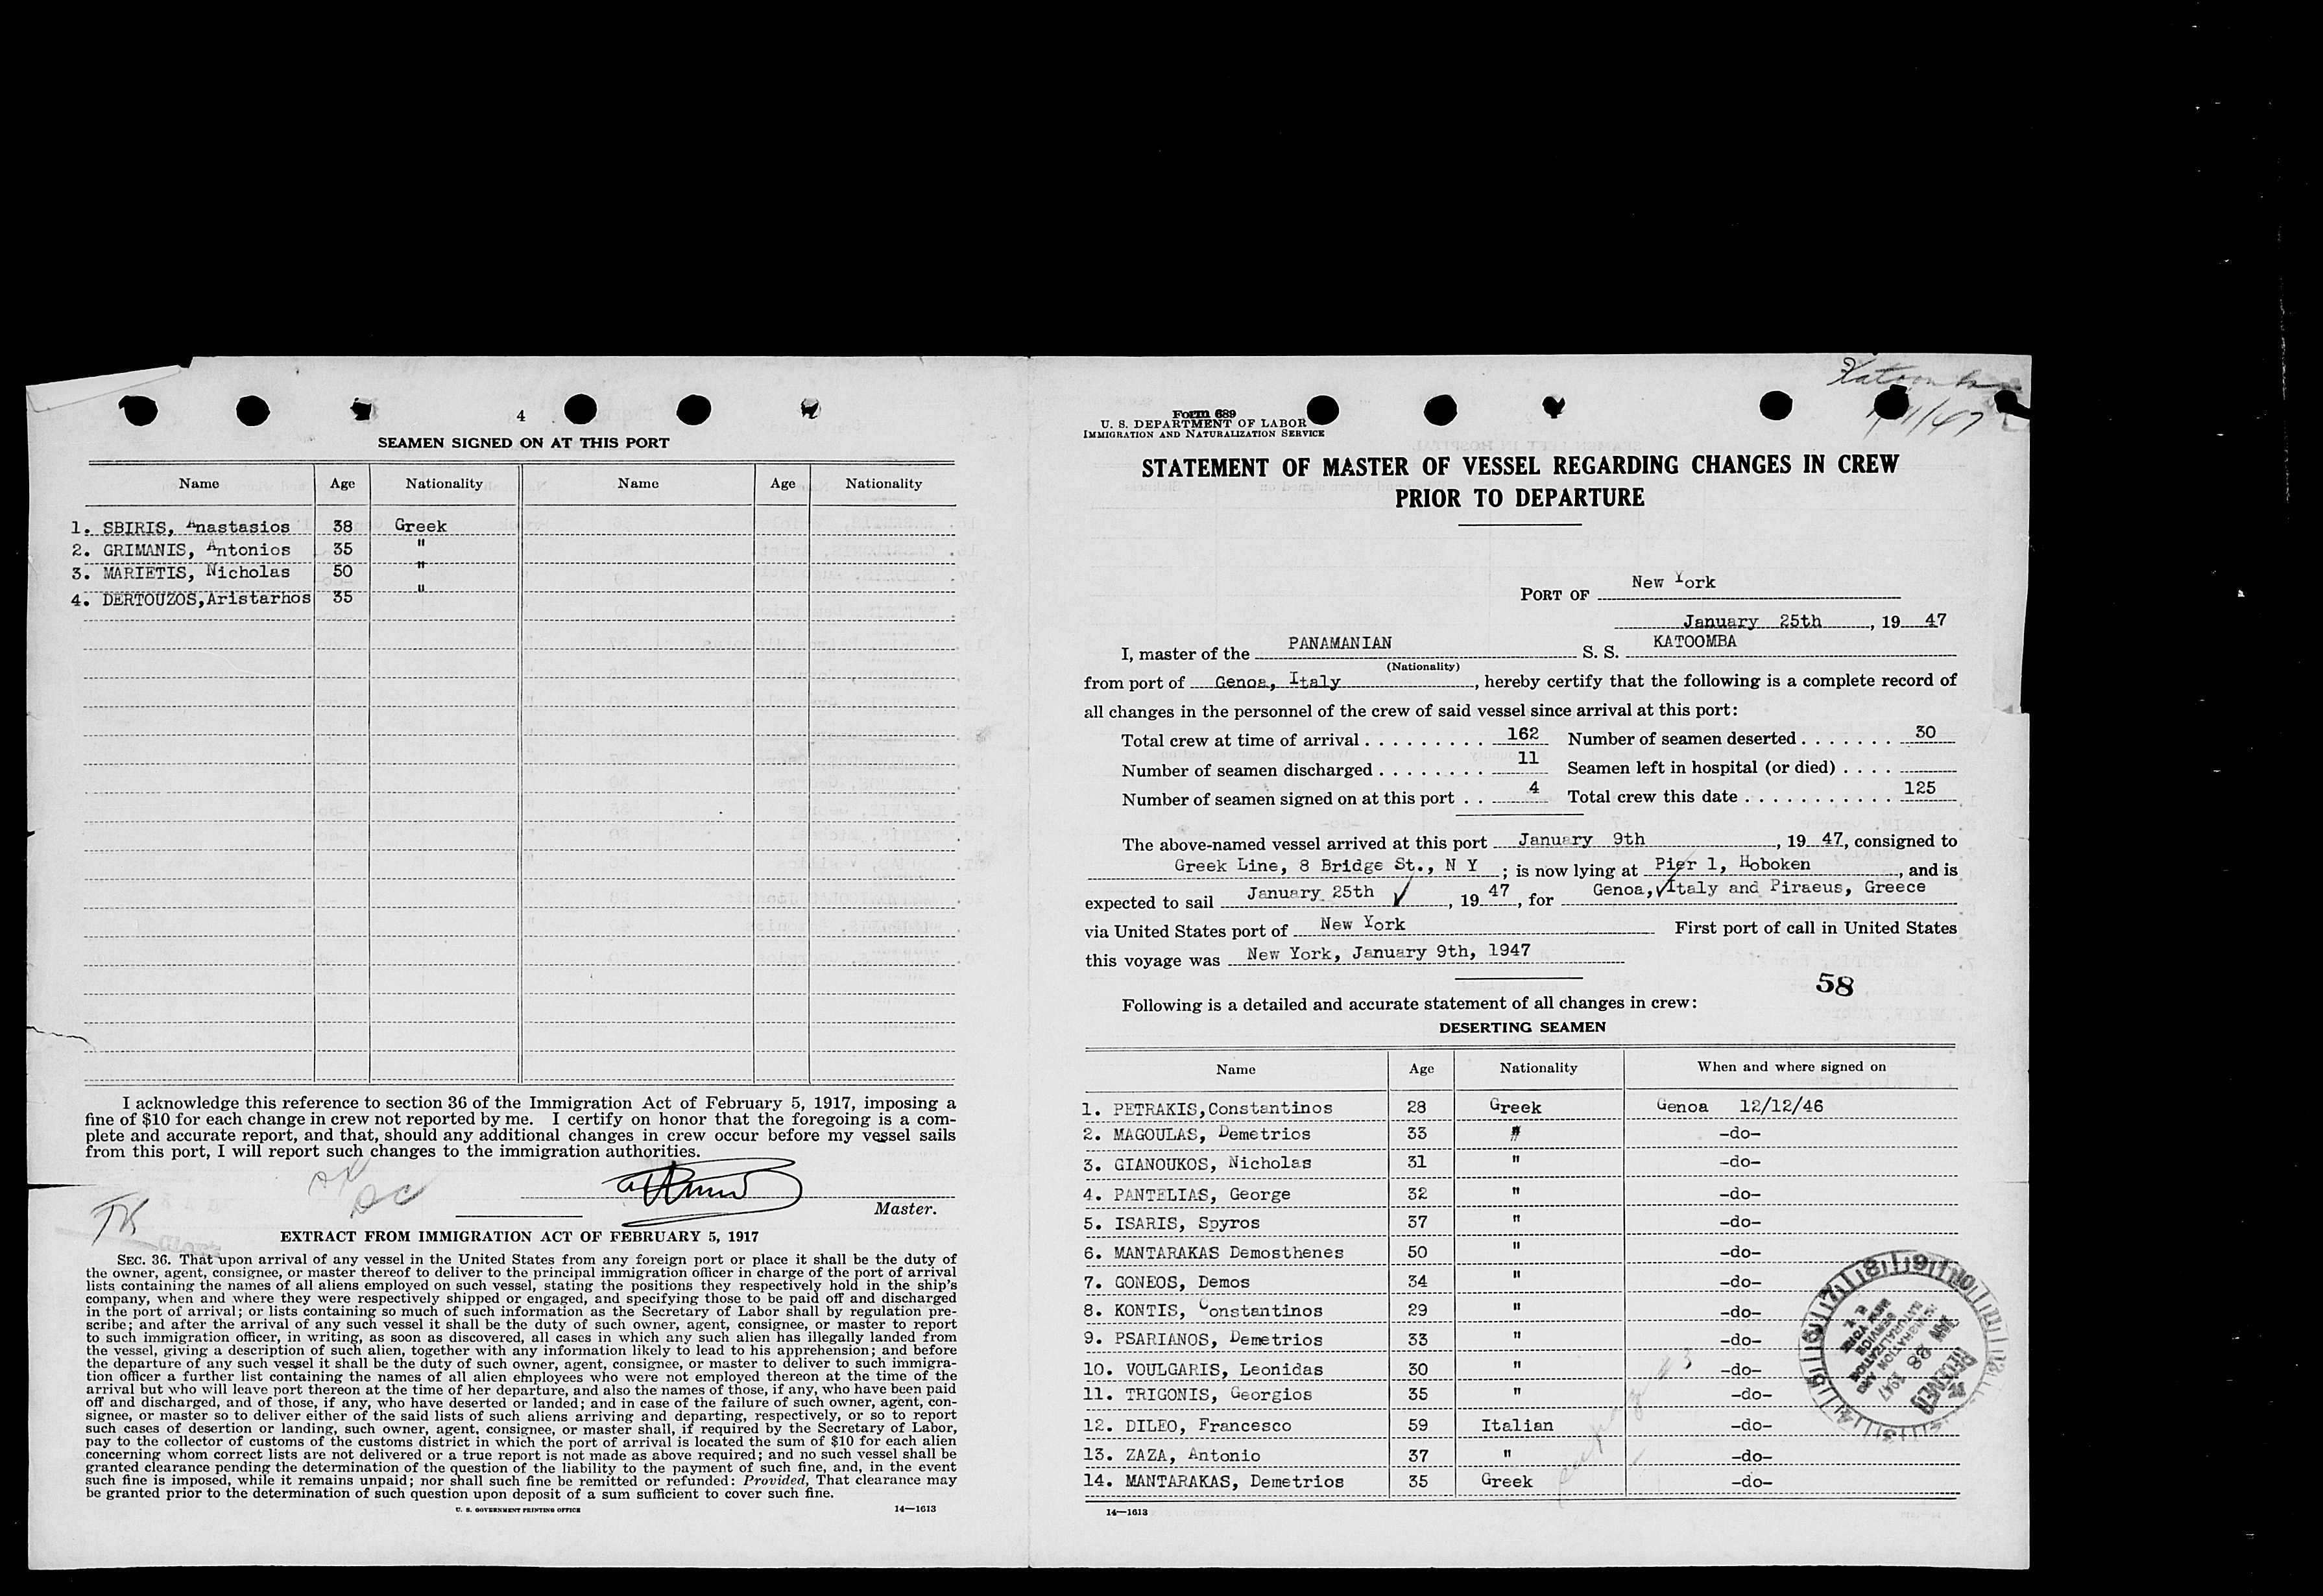 4
SEAMEN SIGNED ON AT THIS PORT
Name Age Nationality Name Age Nationality
1. SBIRIS, Anastasios 38 Greek
2. GRIMANIS, Antonios 35 "
3. MARIETIS, Nicholas 50 "
4. DERTOUZOS,Aristarhos 35 "
I acknowledge this reference to section 36 of the Immigration Act of February 5, 1917, imposing a
fine of $10 for each change in crew not reported by me. I certify on honor that the foregoing is a com-
plete and accurate report, and that, should any additional changes in crew occur before my vessel sails
from this port, I will report such changes to the immigration authorities.
Master.
EXTRACT FROM IMMIGRATION ACT OF FEBRUARY 5, 1917
SEC. 36. That upon arrival of any vessel in the United States from any foreign port or place it shall be the duty of
the owner, agent, consignee, or master thereof to deliver to the principal immigration officer in charge of the port of arrival
lists containing the names of all aliens employed on such vessel, stating the positions they respectively hold in the ship's
company, when and where they were respectively shipped or engaged, and specifying those to be paid off and discharged
in the port of arrival; or lists containing so much of such information as the Secretary of Labor shall by regulation pre-
scribe; and after the arrival of any such vessel it shall be the duty of such owner, agent, consignee, or master to report
to such immigration officer, in writing, as soon as discovered, all cases in which any such alien has illegally landed from
the vessel, giving a description of such alien, together with any information likely to lead to his apprehension; and before
the departure of any such vessel it shall be the duty of such owner, agent, consignee, or master to deliver to such immigra-
tion officer a further list containing the names of all alien employees who were not employed thereon at the time of the
arrival but who will leave port thereon at the time of her departure, and also the names of those, if any, who have been paid
off and discharged, and of those, if any, who have deserted or landed; and in case of the failure of such owner, agent, con-
signee, or master so to deliver either of the said lists of such aliens arriving and departing, respectively, or so to report
such cases of desertion or landing, such owner, agent, consignee, or master shall, if required by the Secretary of Labor,
pay to the collector of customs of the customs district in which the port of arrival is located the sum of $10 for each alien
concerning whom correct lists are not delivered or a true report is not made as above required; and no such vessel shall be
granted clearance pending the determination of the question of the liability to the payment of such fine, and, in the event
such fine is imposed, while it remains unpaid; nor shall such fine be remitted or refunded: Provided, That clearance may
be granted prior to the determination of such question upon deposit of a sum sufficient to cover such fine.
U. S. GOVERNMENT PRINTING OFFICE 14—1613
Katoomba
Form 689
U. S. DEPARTMENT OF LABOR
IMMIGRATION AND NATURALIZATION SERVICE
STATEMENT OF MASTER OF VESSEL REGARDING CHANGES IN CREW
PRIOR TO DEPARTURE
PORT OF New York
January 25th, 19 47
I, master of the PANAMANIAN S. S. KATOOMBA
(Nationality)
from port of Genoa, Italy, hereby certify that the following is a complete record of
all changes in the personnel of the crew of said vessel since arrival at this port:
Total crew at time of arrival . . . . . . . . . 162 Number of seamen deserted . . . . . . . 30
Number of seamen discharged . . . . . . . . 11 Seamen left in hospital (or died) . . . .
Number of seamen signed on at this port . . 4 Total crew this date . . . . . . . . . . . . 125
The above-named vessel arrived at this port January 9th, 19 47, consigned to
Greek Line, 8 Bridge St., N Y; is now lying at Pier 1, Hoboken, and is
expected to sail January 25th, 19 47, for Genoa, Italy and Piraeus, Greece
via United States port of New York First port of call in United States
this voyage was New York, January 9th, 1947
58
Following is a detailed and accurate statement of all changes in crew:
DESERTING SEAMEN
Name Age Nationality When and where signed on
1. PETRAKIS,Constantinos 28 Greek Genoa 12/12/46
2. MAGOULAS, Demetrios 33 " -do-
3. GIANOUKOS, Nicholas 31 " -do-
4. PANTELIAS, George 32 " -do-
5. ISARIS, Spyros 37 " -do-
6. MANTARAKAS Demosthenes 50 " -do-
7. GONEOS, Demos 34 " -do-
8. KONTIS, Constantinos 29 " -do-
9. PSARIANOS, Demetrios 33 " -do-
10. VOULGARIS, Leonidas 30 " -do-
11. TRIGONIS, Georgios 35 " -do-
12. DILEO, Francesco 59 Italian -do-
13. ZAZA, Antonio 37 " -do-
14. MANTARAKAS, Demetrios 35 Greek -do-
RECEIVED
JAN 28 1947
14—1613